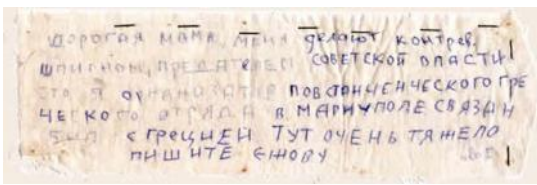 дорогая мама, меня делают контрев.
шпионом, предателем советской власти
что я организатор повстанческого гре
ческого отряда в Мариуполе связан
был с Грецией тут очень тяжело
пишите Ежову